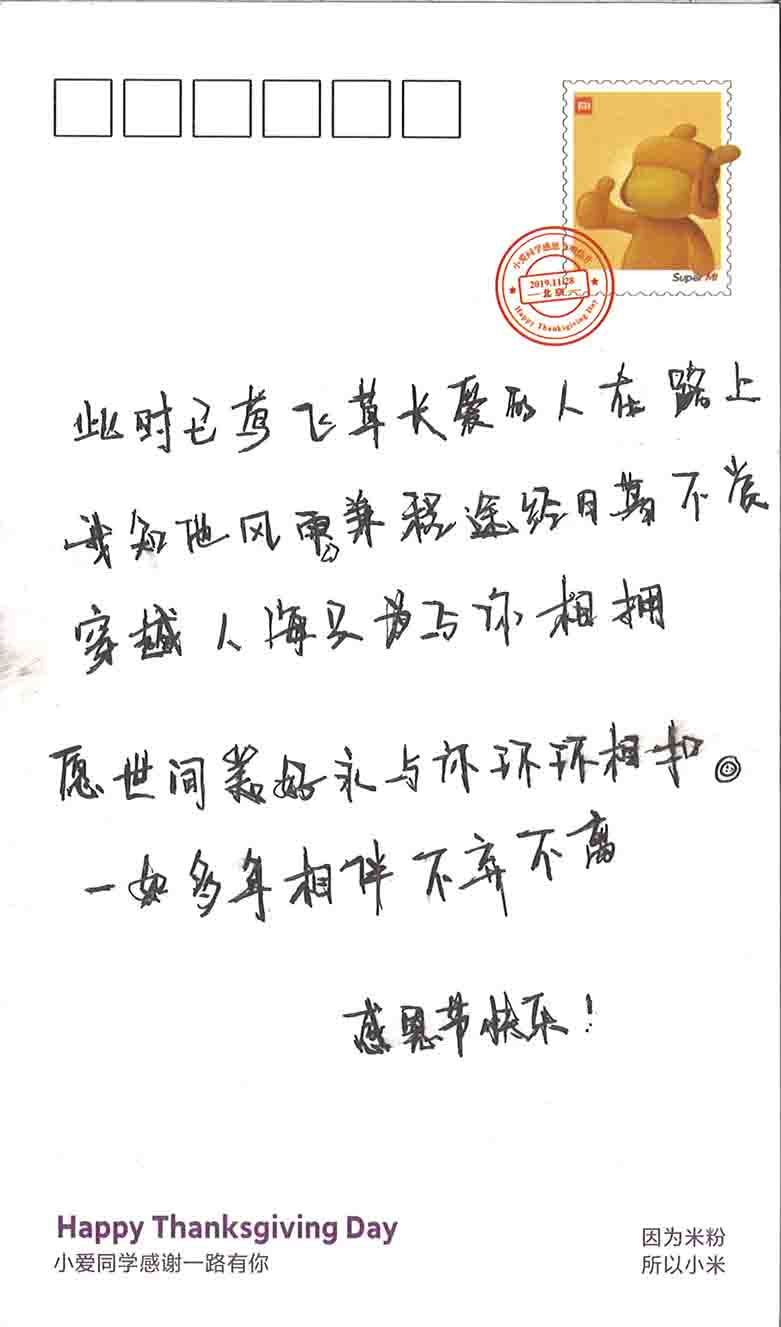 小爱同学感恩节明信片
2019.11.28
北京
Happy Thanksgiving Day
Super MI
此时已莺飞草长爱的人在路上
我知他风雨兼程途经日暮不赏
穿越人海只为与你相拥
愿世间美好永与你环环相扣。
一如多年相伴不弃不离
感恩节快乐!
Happy Thanksgiving Day
小爱同学感谢一路有你
因为米粉
所以小米